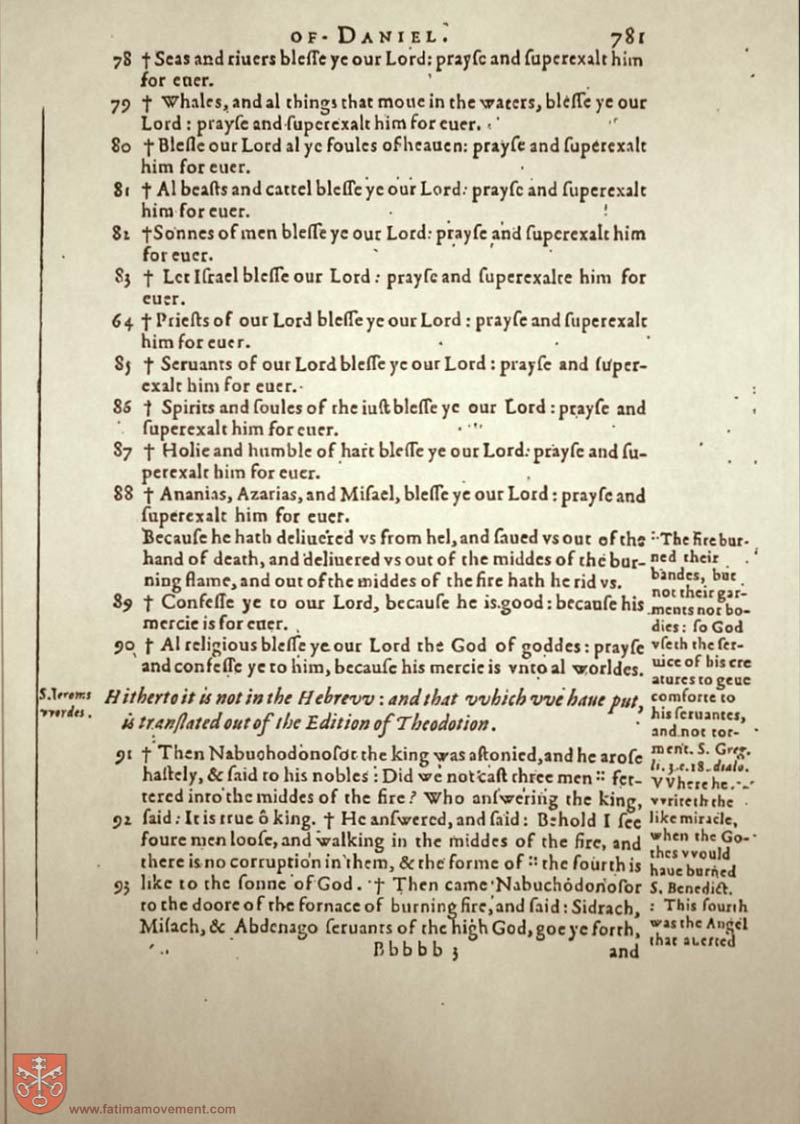 OF DANIEL. 781
78 † Seas and riuers bleſſe ye our Lord: prayſe and ſuperexalt him
for euer.
79 † Whales, and al things that moue in the waters, bleſſe ye our
Lord : prayſe and ſuperexalt him for euer.
80 † Bleſſe our Lord al ye foules of heauen: prayſe and ſuperexalt
him for euer.
81 † Al beaſts and cattel bleſſe ye our Lord: prayſe and ſuperexalt
him for euer.
82 † Sonnes of men bleſſe ye our Lord: prayſe and ſuperexalt him
for euer.
83 † Let Iſrael bleſſe our Lord : prayſe and ſuperexalte him for
euer.
64 † Prieſts of our Lord bleſſe ye our Lord : prayſe and ſuperexalt
him for euer.
85 † Seruants of our Lord bleſſe ye our Lord : prayſe and ſuper-
exalt him for euer.
86 † Spirits and ſoules of the iuſt bleſſe ye our Lord : prayſe and
ſuperexalt him for euer.
87 † Holie and humble of hart bleſſe ye our Lord: prayſe and ſu-
perexalt him for euer.
88 † Ananias, Azarias, and Miſael, bleſſe ye our Lord : prayſe and
ſuperexalt him for euer.
Becauſe he hath deliuered vs from hel, and ſaued vs out of the
hand of death, and deliuered vs out of the middes of the bur-
ning flame, and out of the middes of the fire hath he rid vs.
89 † Confeſſe ye to our Lord, becauſe he is good: becauſe his
mercie is for euer.
90 † Al religious bleſſe ye our Lord the God of goddes: prayſe
and confeſſe ye to him, becauſe his mercie is vnto al worldes.
S. Ieroms
vvordes.
Hitherto it is not in the Hebrevv : and that vvhich vve haue put,
is tranſlated out of the Edition of Theodotion.
91 † Then Nabuchodonoſor the king was aſtonied, and he aroſe
haſtely, & ſaid to his nobles : Did we not caſt three men :: fet-
tered into the middes of the fire? Who anſwering the king,
92 ſaid: It is true ô king. † He anſwered, and ſaid: Behold I ſee
foure men looſe, and walking in the middes of the fire, and
there is no corruption in them, & the forme of :: the fourth is
93 like to the ſonne of God. † Then came Nabuchodonoſor
to the doore of the fornace of burning fire, and ſaid: Sidrach,
Miſach, & Abdenago ſeruants of the high God, goe ye forth,
Bbbbb 3 and
:: The fire bur-
ned their
bandes, but
not their gar-
ments nor bo-
dies: ſo God
vſeth the ſer-
uice of his cre
atures to geue
comforte to
his ſeruantes,
and not tor-
ment. S. Greg.
li. 3. c. 18. dialo.
VVhere he
vvriteth the
like miracle,
when the Go-
thes vvould
haue burned
S. Benedict.
: This fourth
was the Angel
that auerted
www.fatimamovement.com